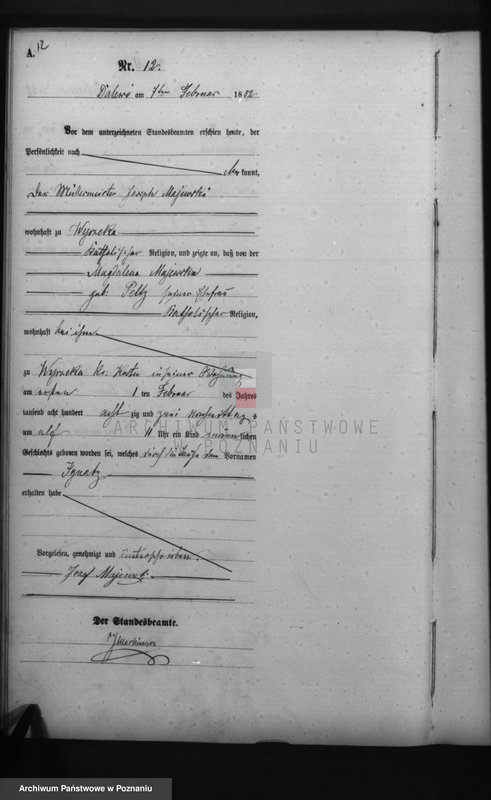 A. 12
Nr. 12.
Dalewo am 7ten Februar 1882
Vor dem unterzeichneten Standesbeamten erschien heute, der
Persönlichkeit nach
kannt,
Der Müllermeister Joseph Majewski
wohnhaft zu
katholischer Religion, und zeigte an, daß von der
Magdalena Majewska
geb. Peltz seiner Ehefrau
katholischer Religion,
wohnhaft bei ihm
zu in seiner Wohnung
am ersten 1 ten Februar des Jahres
tausend acht hundert acht zig und zwei vormittag s
um elf 11 Uhr ein Kind männlichen
Geschlechts geboren worden sei, welches den Vornamen
Ignatz
erhalten habe
Vorgelesen, genehmigt und unterschrieben.
Josef Majewski
Der Standesbeamte.
ARCHIWUM PAŃSTWOWE
W POZNANIU
Archiwum Państwowe w Poznaniu